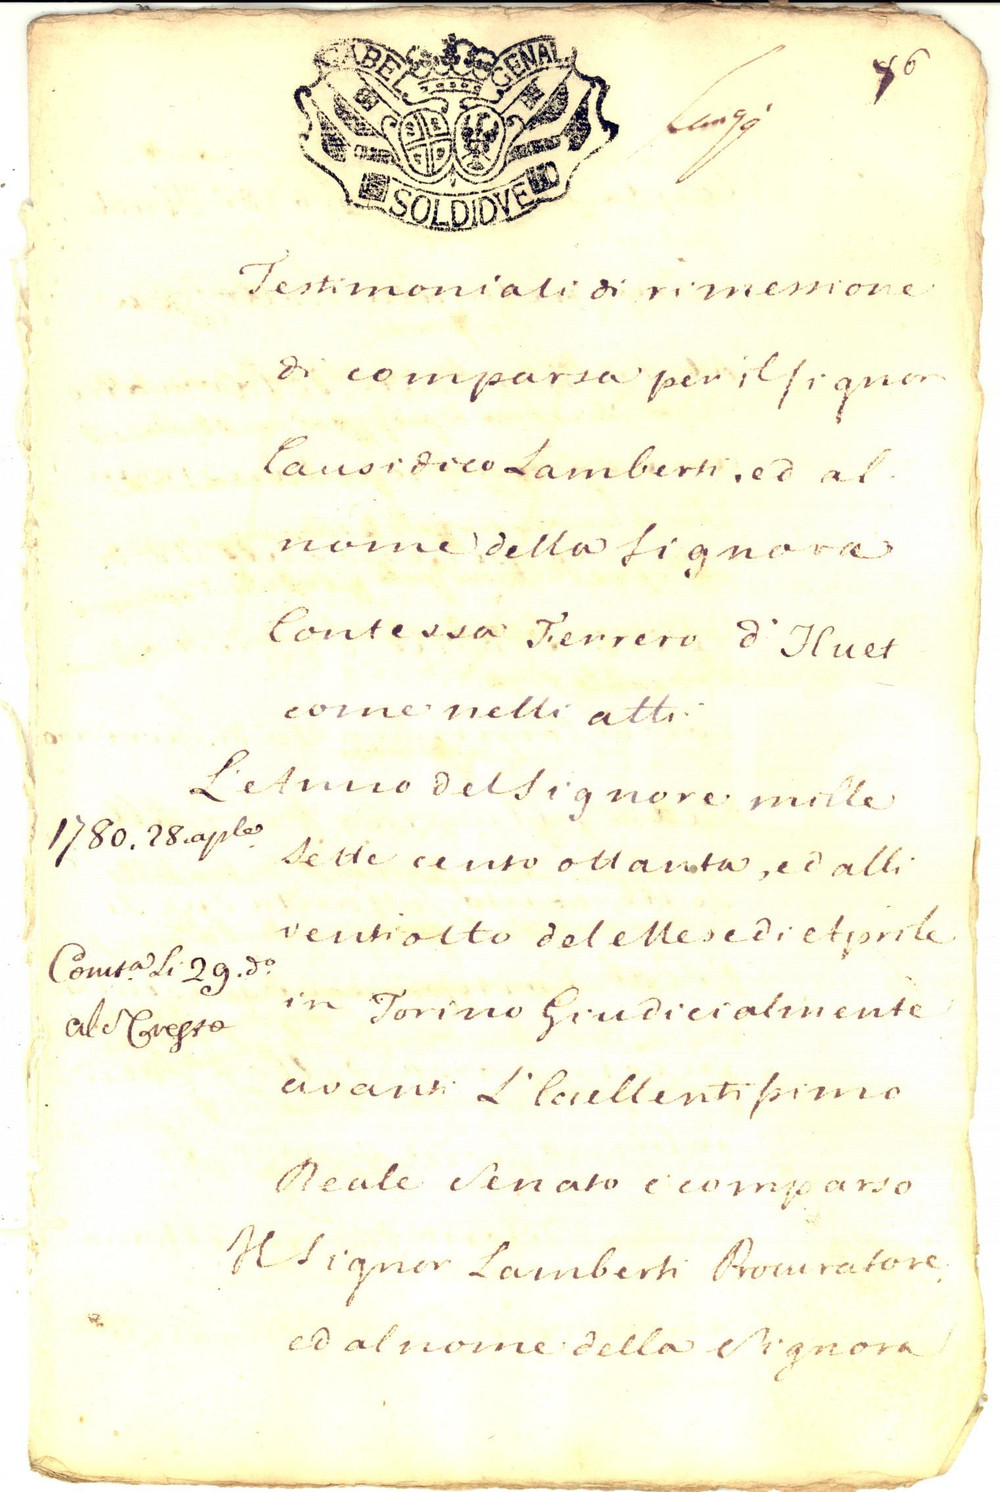 GABEL. GENAL
SOLDI DVE
46
Testimoniali di rimessione
di comparsa per il Signor
Causidico Lamberti, ed al
nome della Signora
Contessa Ferrero d'Huet
come nelli atti
L'Anno del Signore mille
1780. 28. aple
sette cento ottanta, ed alli
ventiotto del Mese di Aprile
Comta. li 29. do.
in Torino Giudicialmente
al
avanti L'Eccellentissimo
Reale Senato è comparso
Il Signor Lamberti Procuratore,
ed al nome della Signora